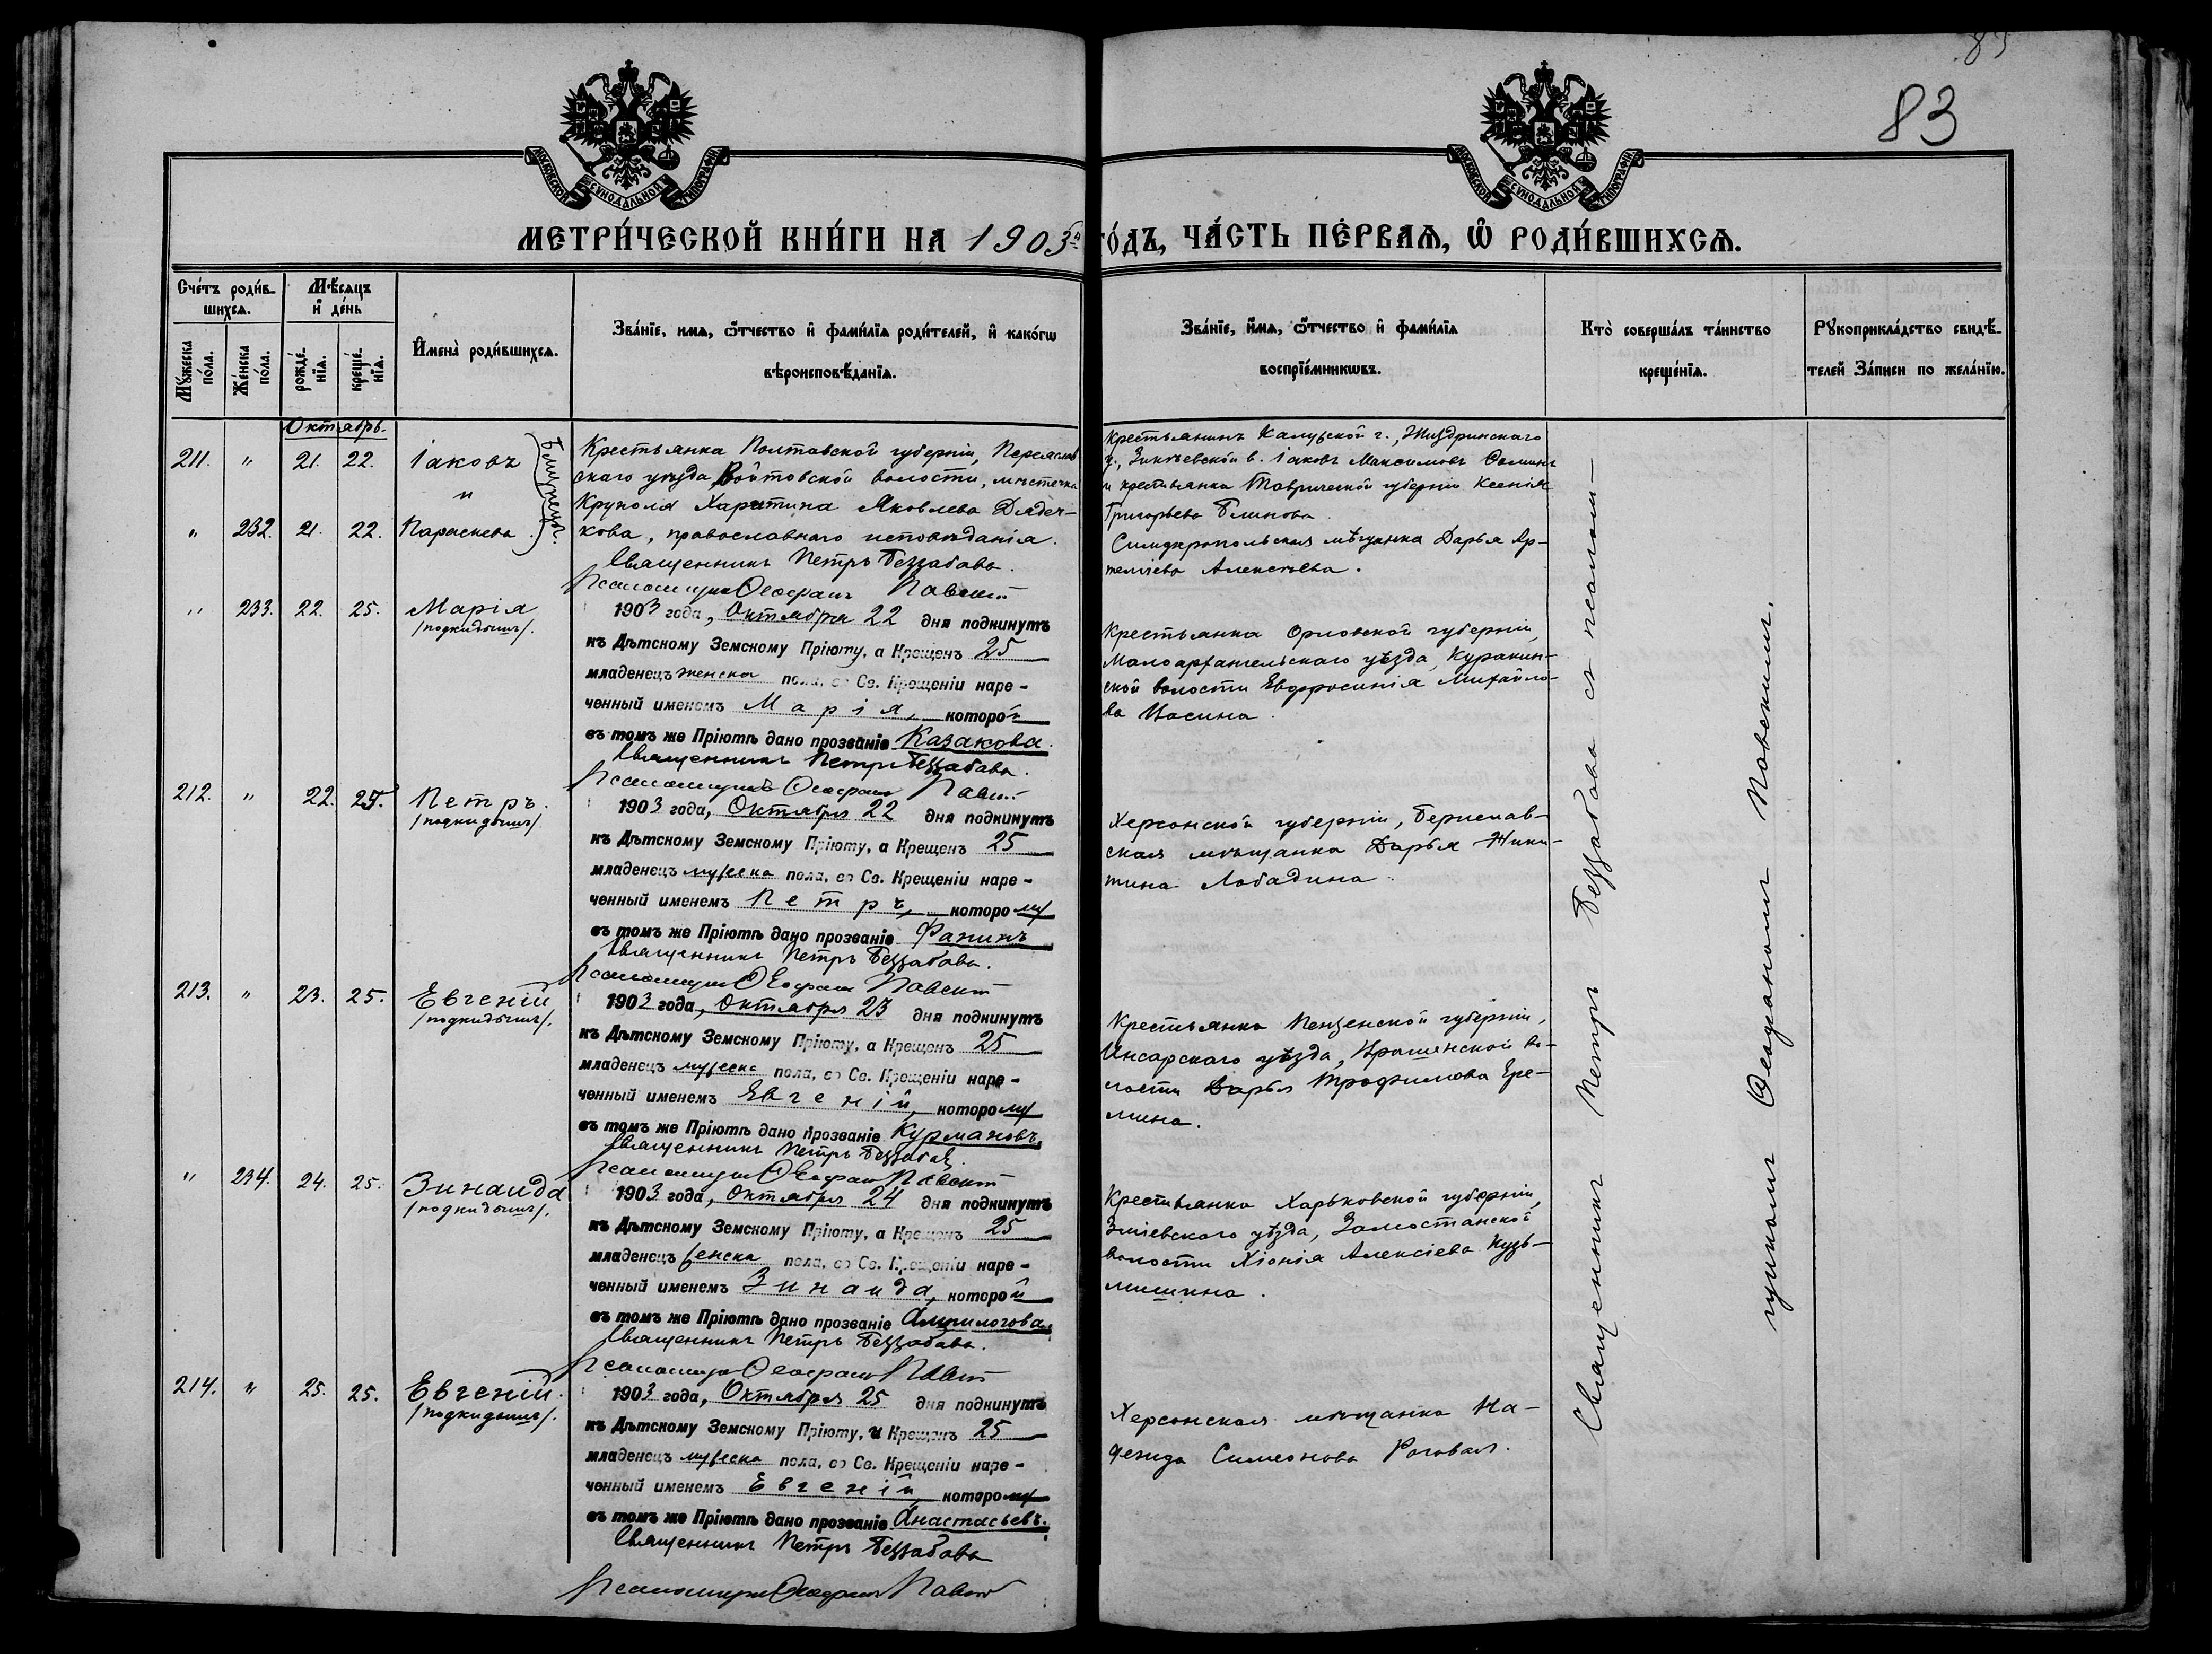 83
МОСКОВСКОЙ СѴНОДАЛЬНОЙ ТИПОГРАФІИ
МОСКОВСКОЙ СѴНОДАЛЬНОЙ ТИПОГРАФІИ
МЕТРИ́ЧЕСКОЙ КНИ́ГИ НА 1903й ГО́ДЪ, ЧА́СТЬ ПЕ́РВАѦ, Ѡ҆ РОДИ́ВШИХСѦ.
Сче́тъ роди́в-
шихсѧ.
Мꙋ́жеска по́ла.
Же́нска по́ла.
Мѣ́сѧцъ
и҆ де́нь
рожде́-
нїѧ.
креще́-
нїѧ.
И҆мена̀ роди́вшихсѧ.
Зва́нїе, имѧ, ѻ҆́тчество и҆ фами́лїѧ роди́телей, и҆ како́гѡ
вѣроисповѣ́данїѧ.
Зва́нїе, и҆́мѧ, ѻ҆́тчество и҆ фами́лїѧ
воспрїе́мникѡвъ.
Кто̀ соверша́лъ та́инство
креще́нїѧ.
Рꙋкоприкла́дство свидѣ́-
телей За́писи по жела́нїю.
Октябрь.
211. " 21. 22. Іаковъ
и
" 232. 21. 22. Параскева
Близнецы.
Крестьянка Полтавской губерніи, Переяслав-
скаго уѣзда, Войтовской волости, мѣстечка
Круполя Харитина Яковлева Дядеч-
кова, православнаго исповѣданія.
Священникъ Петръ Беззабава.
Псаломщикъ Ѳеофанъ Павскій
Крестьянинъ Калужской г., Жиздринскаго
у., Зикѣевской в. Іаковъ Максимовъ Ѳоминъ
и крестьянка Таврической губерніи Ксенія
Григорьева Блинова.
Симферопольская мѣщанка Дарья Ар-
темьева Алексѣева.
" 233. 22. 25. Марія
/подкидышъ/.
1903 года, Октября 22 дня подкинутъ
къ Дѣтскому Земскому Пріюту, а Крещенъ 25
младенецъ женска пола, во Св. Крещеніи наре-
ченный именемъ Марія, которой
въ томъ же Пріютѣ дано прозваніе Казакова.
Священникъ Петръ Беззабава.
Псаломщикъ Ѳеофанъ Павскій
Крестьянка Орловской губерніи,
Малоархангельскаго уѣзда, Куракин-
ской волости Евфросинія Михайло-
ва Иосина.
212. " 22. 25. Петръ.
/подкидышъ/
1903 года, Октября 22 дня подкинутъ
къ Дѣтскому Земскому Пріюту, а Крещенъ 25
младенецъ мужеска пола, во Св. Крещеніи наре-
ченный именемъ Петръ, которому
въ томъ же Пріютѣ дано прозваніе Фанинъ
Священникъ Петръ Беззабава.
Псаломщикъ Ѳеофанъ Павскій
Херсонской губерніи, Берислав-
ская мѣщанка Дарья Ники-
тина Лабадина.
213. " 23. 25. Евгеній
/подкидышъ/.
1903 года, Октября 23 дня подкинутъ
къ Дѣтскому Земскому Пріюту, а Крещенъ 25
младенецъ мужеска пола, во Св. Крещеніи наре-
ченный именемъ Евгеній, которому
въ томъ же Пріютѣ дано прозваніе Курмановъ,
Священникъ Петръ Беззабава.
Псаломщикъ Ѳеофанъ Павскій
Крестьянка Пензенской губерніи,
Инсарскаго уѣзда, во-
лости Дарья Трофимова Ере-
мина.
" 234. 24. 25. Зинаида
/подкидышъ/.
1903 года, Октября 24 дня подкинутъ
къ Дѣтскому Земскому Пріюту, а Крещенъ 25
младенецъ женска пола, во Св. Крещеніи наре-
ченный именемъ Зинаида, которой
въ томъ же Пріютѣ дано прозваніе Ампилогова,
Священникъ Петръ Беззабава.
Псаломщикъ Ѳеофанъ Павскій
Крестьянка Харьковской губерніи,
Зміевскаго уѣзда, Замостянской
волости Хіонія Алексіева Кузь-
мишина.
214. " 25. 25. Евгеній.
/подкидышъ/.
1903 года, Октября 25 дня подкинутъ
къ Дѣтскому Земскому Пріюту, и Крещенъ 25
младенецъ мужеска пола, во Св. Крещеніи наре-
ченный именемъ Евгеній, которому
въ томъ же Пріютѣ дано прозваніе Анастасьевъ.
Священникъ Петръ Беззабава
Псаломщикъ Ѳеофанъ Павскій
Херсонская мѣщанка На-
дежда Симеонова Роговая.
Священникъ Петръ Беззабава съ псалом-
щикомъ Ѳеофаномъ Павскимъ.